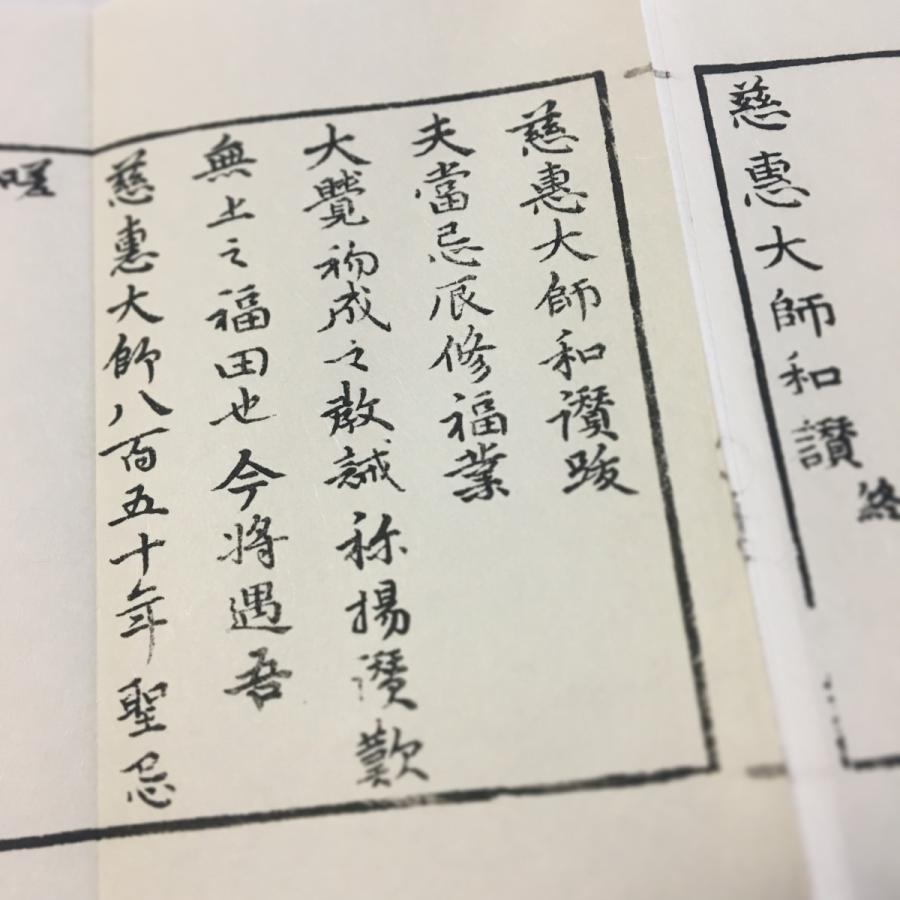 慈惠大師和讃
終
慈惠大師和讃跋
夫當忌辰修福業
大覺初成之教誡称揚讃歎
無上之福田也今將遇吾
慈惠大師八百五十年聖忌
嗟